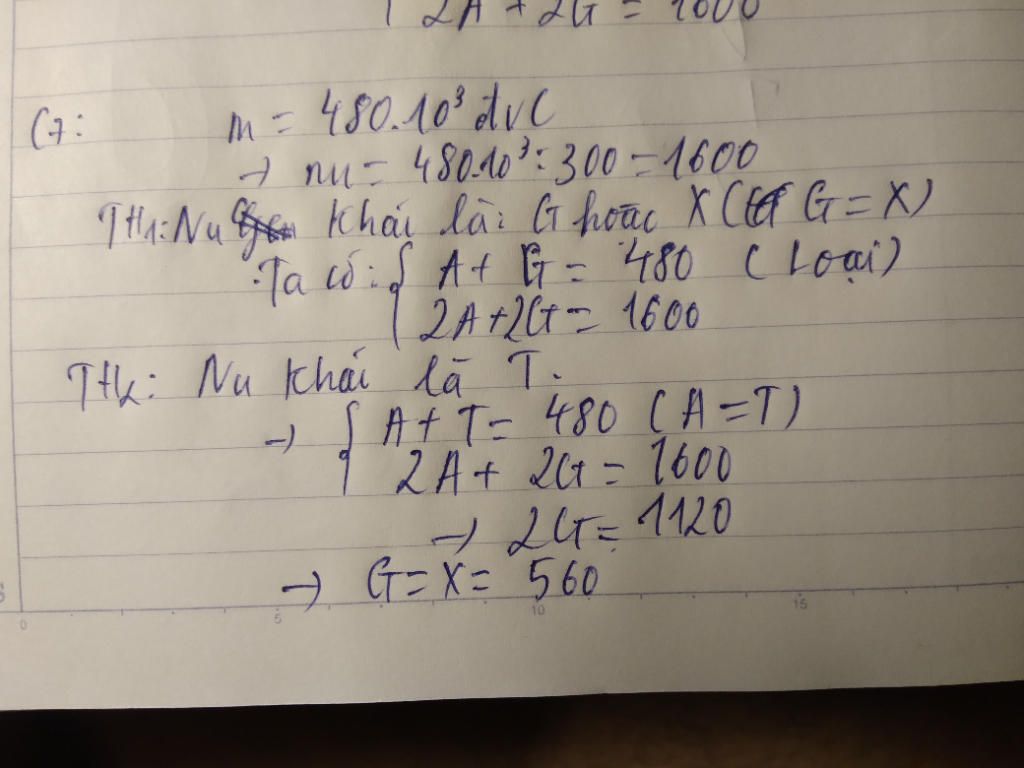 2A + 2G = 1600
C7: m = 480.10³ đvC
→ nu = 480.10³ : 300 = 1600
TH1: Nu khái là: G hoặc X ( G = X)
Ta có: { A + G = 480 ( Loại )
2A + 2G = 1600
TH2: Nu khái là T.
→ { A + T = 480 ( A = T )
2A + 2G = 1600
→ 2G = 1120
→ G = X = 560
0 5 10 15